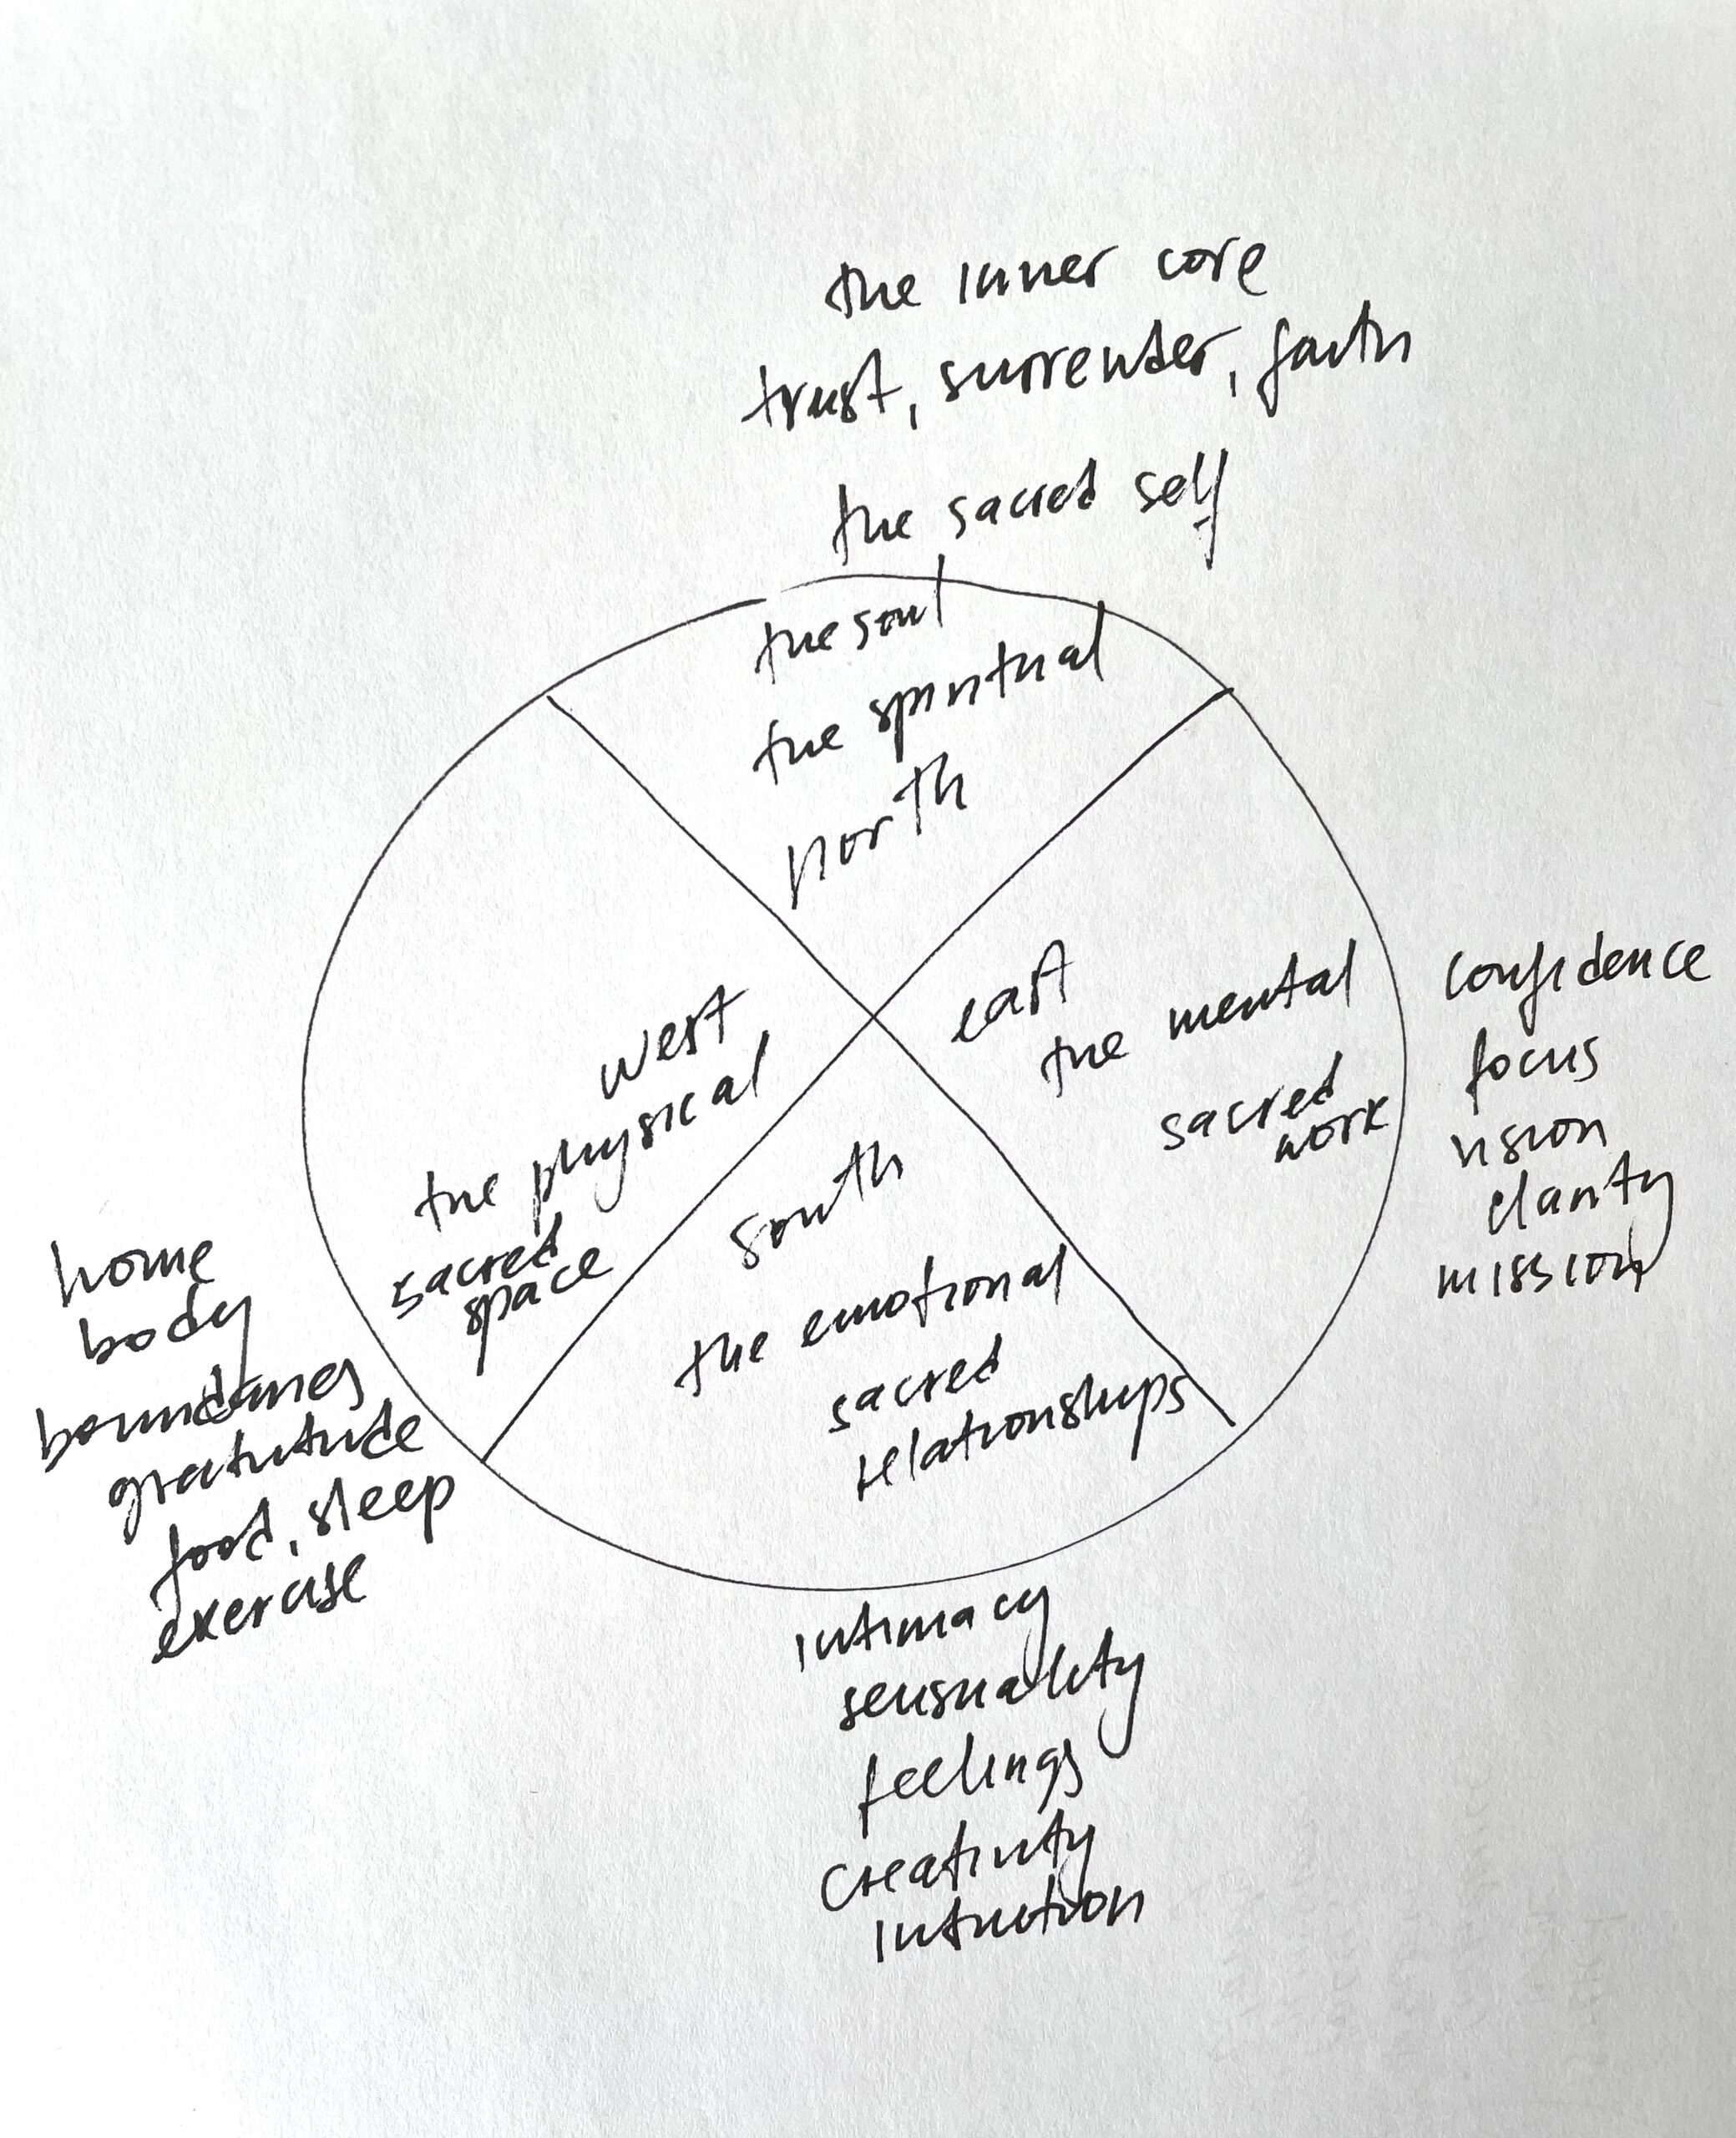 the inner core
trust, surrender, faith
the sacred self
the soul
the spiritual
north
west
the physical
sacred
space
home
body
boundaries
gratitude
food, sleep
exercise
east
the mental
sacred
work
confidence
focus
vision
clarity
mission
south
the emotional
sacred
relationships
intimacy
sensuality
feelings
creativity
intuition